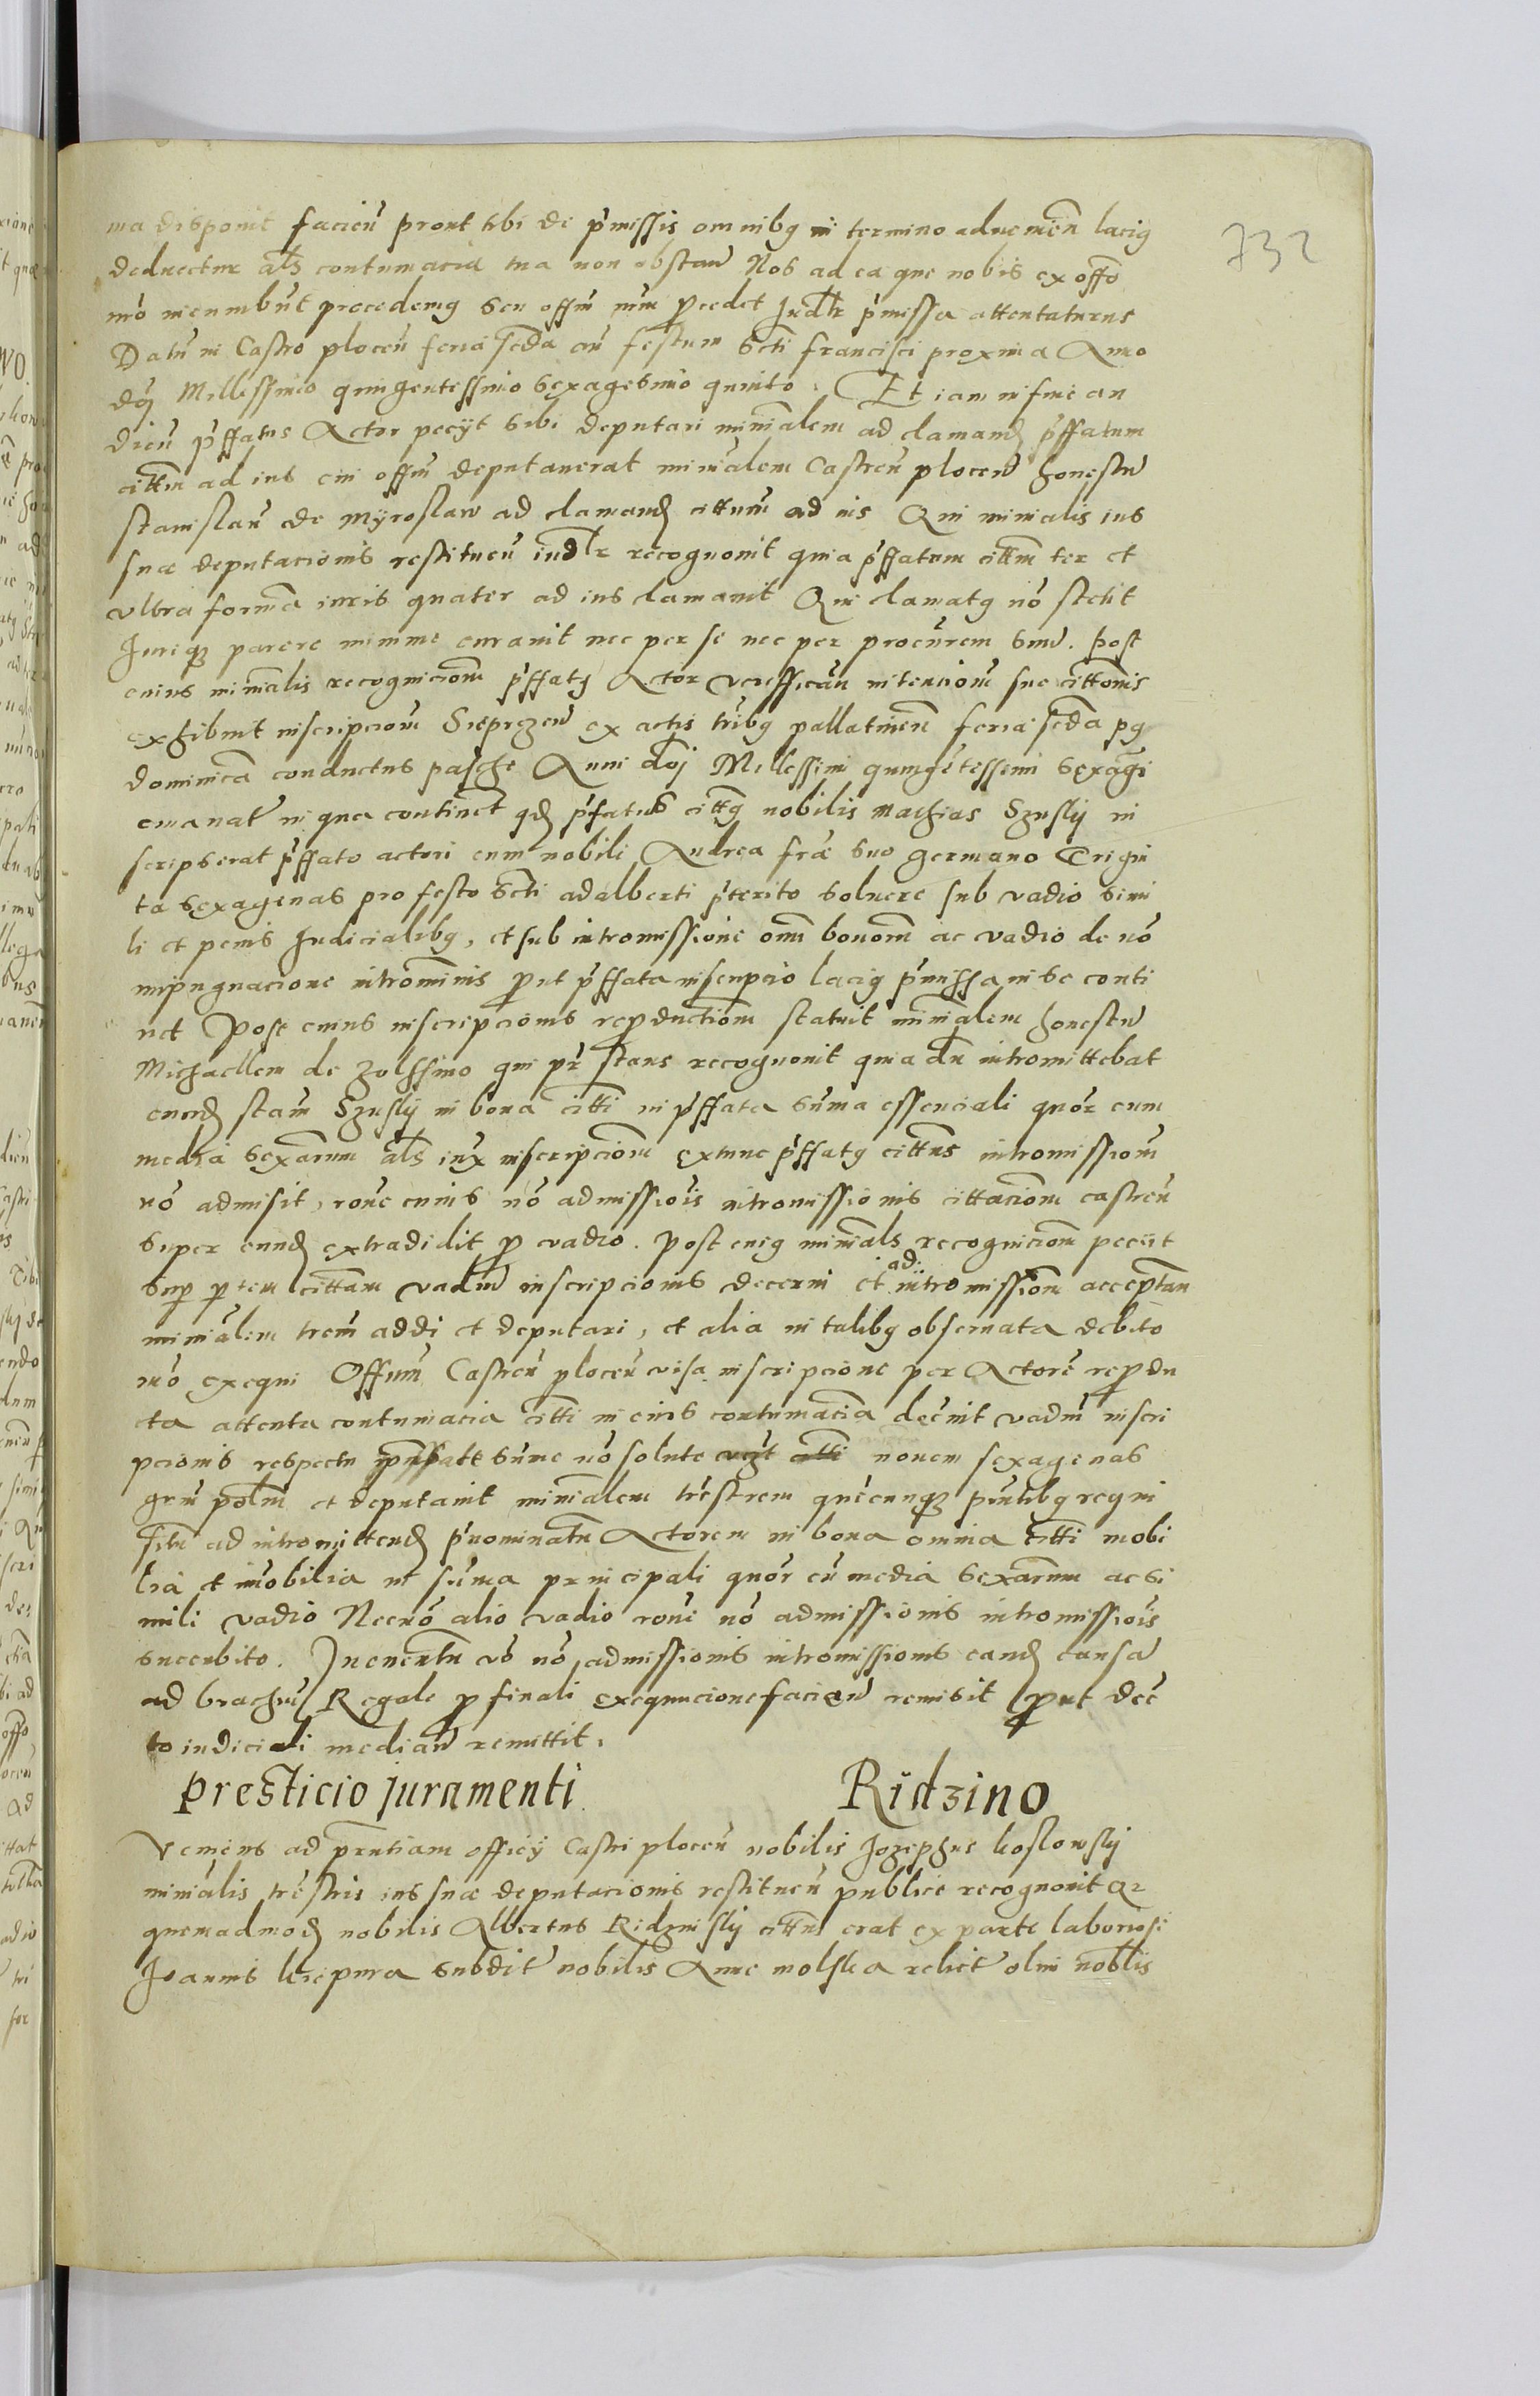 732
ma disponit facien̄ prout tibi de p̄missis omnibg in termino advenien̄ lacig
deducetur als contumacia tua non obstan̄ Nos ad ea que nobis ex offo
nr̄o incumbūt procedemg seu offm̄ nr̄m procedet Judlr p̄missa attentaturus
Datū in Castro plocen̄ feria scda an̄ festum Scti Francisci proxima Anno
dnj Millessimo quingentessimo sexagesimo quinto. Et iam in fine au
dien̄ p̄ffatus Actor pecijt sibi deputari minralem ad clamand p̄ffatum
cittm̄ ad ius cui offm̄ deputauerat minralem Castren̄ plocen̄ honestū
Stanislaū de Myroslaw ad clamand cittum̄ ad ius Qui minialis ius
suae deputacionis restituen̄ iudlr recognouit quia p̄ffatum cittm ter et
ultra formā iuris quater ad ius clamauit Qui clamatg nō stetit
Juriqz parere minime curauit nec per se nec per procūrem suū. Post
cuius minialis recognicionem p̄ffatg Actor verifficān intencionē sue cittonis
exhibuit inscripcionē Sieprzen̄ ex actis trībg pallatinen̄ feria scda pg
dominicā conductus pasche Anni dnj Millessimi quingētessimi sexagē
emanat̄ in qua continet qd p̄fatus cittg nobilis Mathias Szuskij in
scripserat p̄ffato actori cum nobili Andrea frē suo germano Trigin
ta sexagenas pro festo Scti adalberti p̄terito soluere sub vadio simi
li et penis Judicialibg, et sub intromissione om̄ bonom̄ ac vadio de nō
inpugnacione introminis prout p̄ffata inscripcio lacig p̄missa in se conti
net Post cuius inscripcionis reproductionē statuit minialem honestū
Michaellem de Zolssino qui pr̄ stans recognouit quia dū intromittebat
eund stam Szuskij in bona citti in p̄ffata sūma essenciali quōr cum
media sexarum als iux inscripcionē extunc p̄ffatg cittus intromissionē
nō admisit, rone cuius nō admissiōis intromissionis cittacionē castren̄
super eund extradidit pro vadio. Post cuig minials recognicionem peciit
sup ptem cittam vadiū inscripcionis decerni et ad intromissionē acceptan
minialem trem̄ addi et deputari, et alia in talibg obseruata debito
mō exequi Offum̄ Castren̄ plocen̄ visa inscripcione per Actorē reprodu
cta attenta contumacia citti in eius contumaciā decrevit vadiū inscri
pcionis respectu p̄ffate sūme nō solute nouem sexagenas
gru polm̄ et deputauit minialem trēstrem quēcunqz p̄ntibg regni
situ ad intromittend p̄nominatū Actorem in bona omnia citti mobi
lia et imobilia in sūma principali quōr cū media sexarum ac si
mili vadio Necnō alio vadio rone nō admissionis intromissiōis
succubito. In euentū vō nō admissionis intromissionis eand causā
ad brachiū Regale pro finali exequucione facien̄ remisit prout dec
to iudiciali median̄ remittit.
Presticio juramenti Ridzino
Veniens ad prn̄tiam officij Castri plocen̄ nobilis Jozephus koslowskj
minialis trēstris ius suae deputacionis restituen̄ publice recognouit Qr
quemadmod nobilis Albertus Ridzinskj cittus erat ex parte laboriosi
Joannis kiepura subdit̄ nobilis Anne molska relict̄ olim noblis